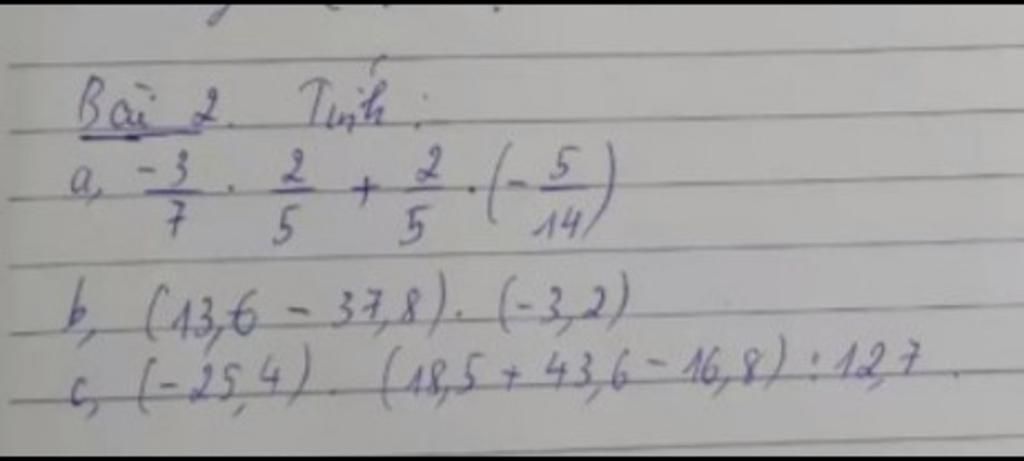 Bài 2. Tính:
a, -3/7 . 2/5 + 2/5 . (-5/14)
b, (13,6 - 37,8). (-3,2)
c, (-25,4) . (18,5 + 43,6 - 16,8) : 12,7.